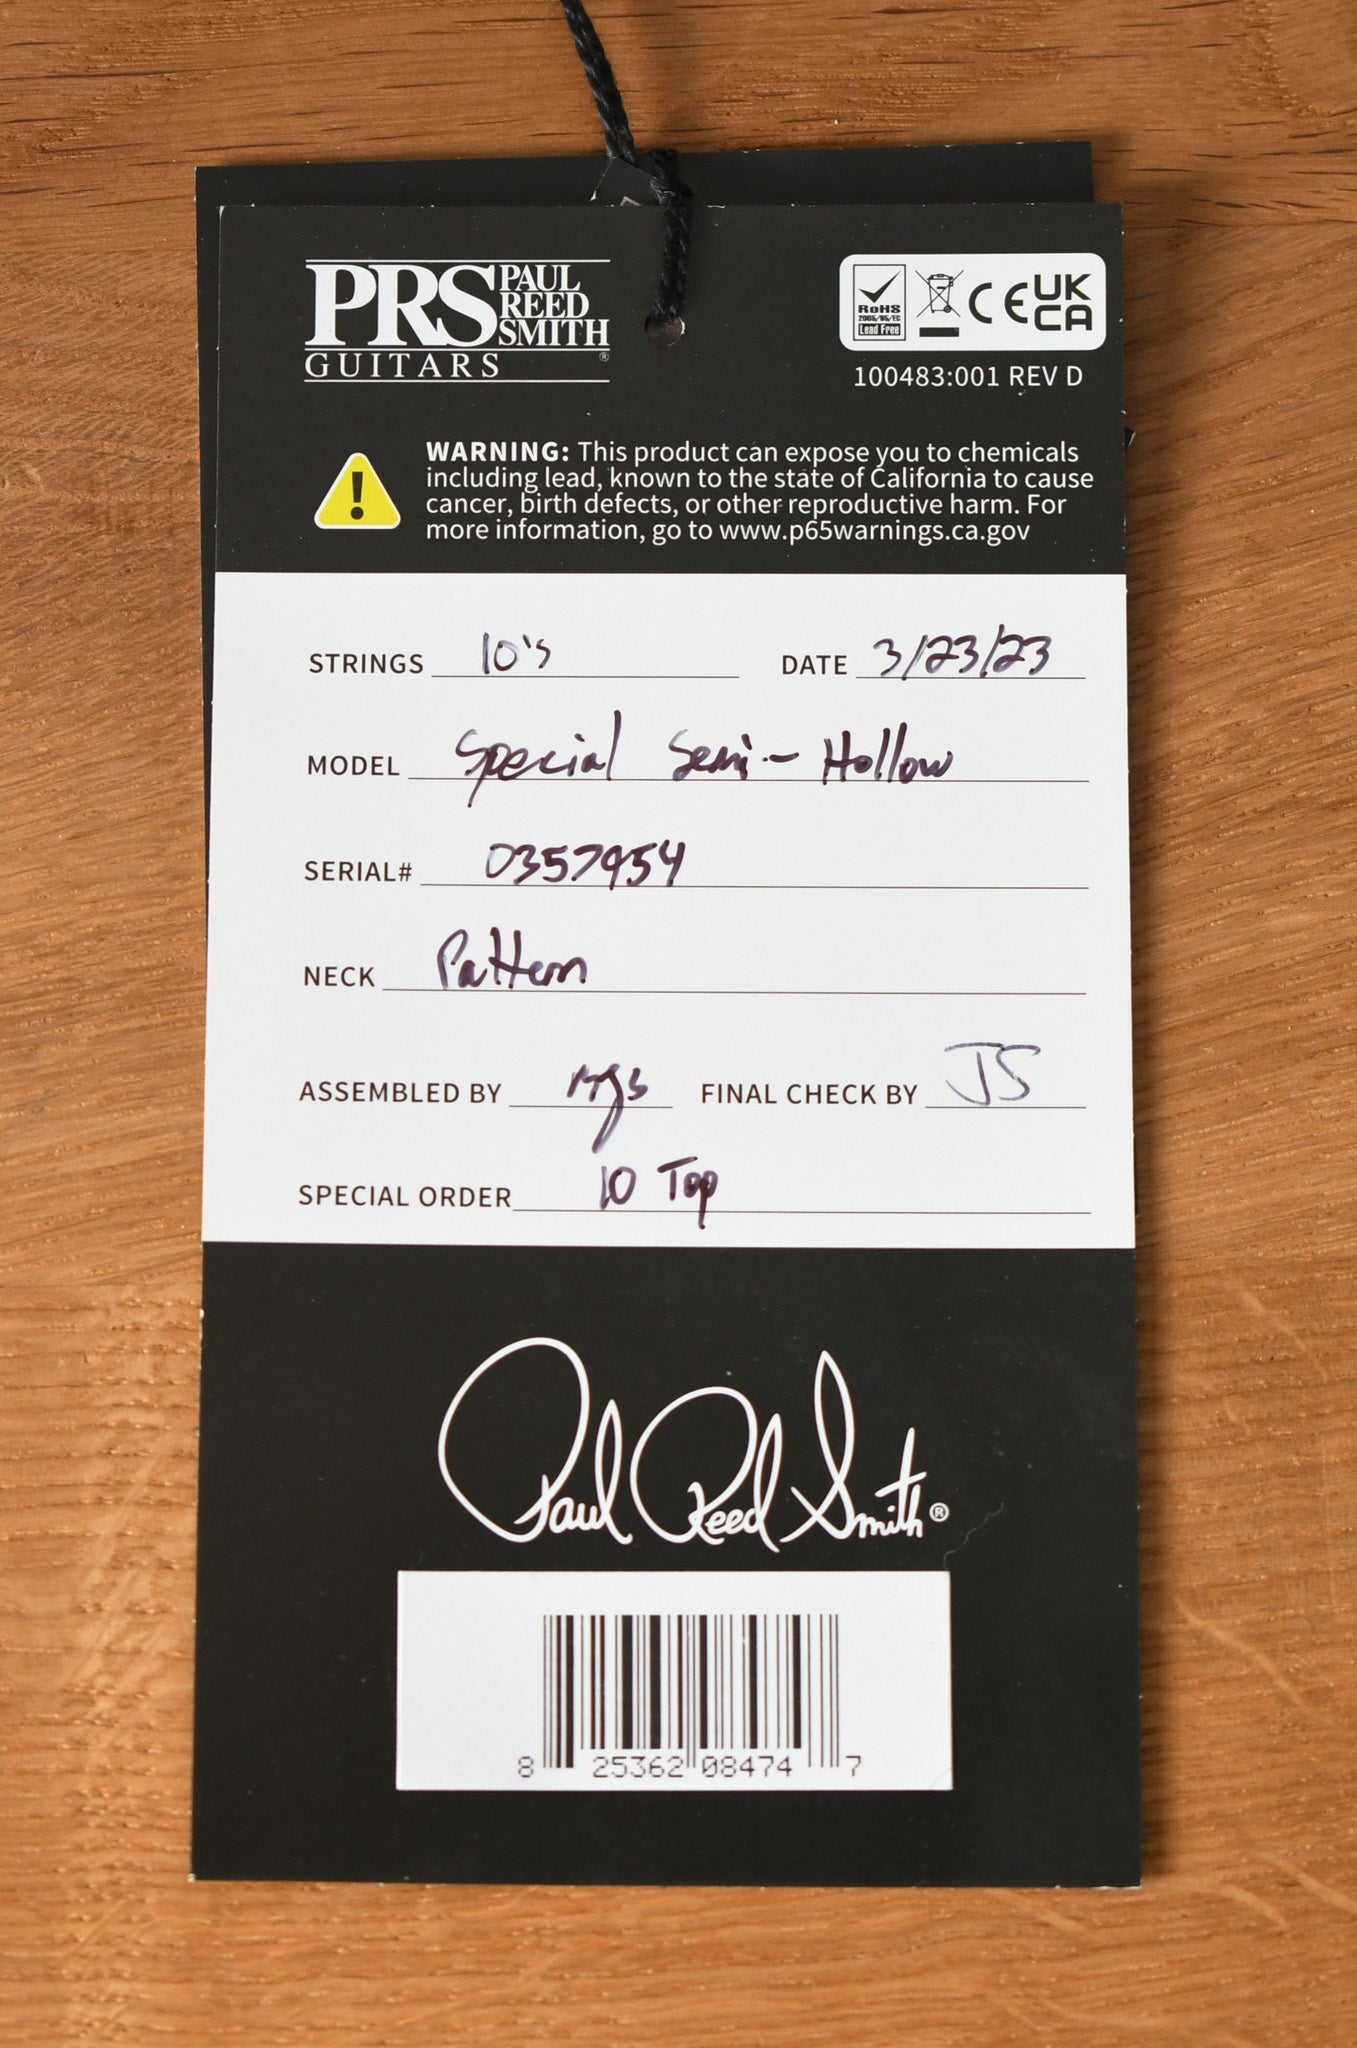 PRS PAUL REED SMITH
GUITARS ®
RoHS
2005/95/EC
Lead Free
CE UK CA
100483:001 REV D
WARNING: This product can expose you to chemicals
including lead, known to the state of California to cause
cancer, birth defects, or other reproductive harm. For
more information, go to www.p65warnings.ca.gov
STRINGS 10's DATE 3/23/23
MODEL Special Semi-Hollow
SERIAL# 0357954
NECK Pattern
ASSEMBLED BY FINAL CHECK BY JS
SPECIAL ORDER 10 Top
Paul Reed Smith ®
8 25362 08474 7